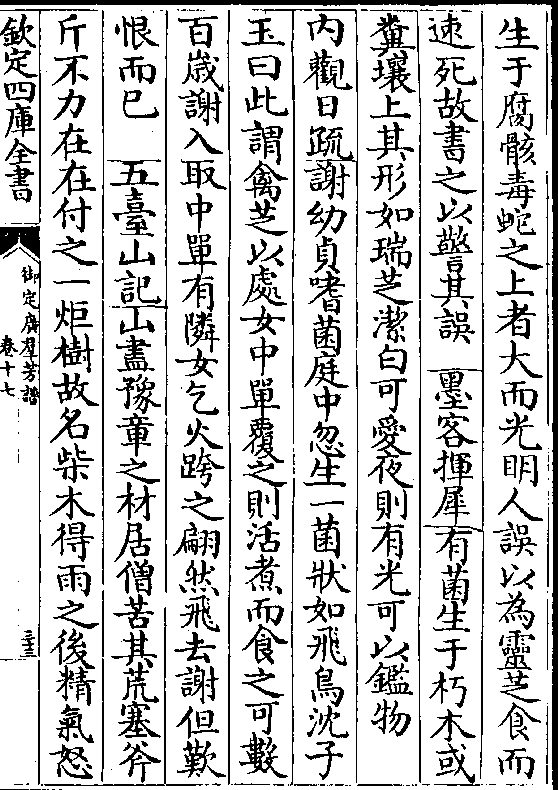 生于腐骸毒蛇之上者大而光明人誤以為靈芝食而
速死故書之以警其誤　墨客揮犀有菌生于朽木或
糞壤上其形如瑞芝潔白可愛夜則有光可以鑑物
内觀日疏謝幼貞嗜菌庭中忽生一菌狀如飛鳥沈子
玉曰此謂禽芝以處女中單覆之則活煮而食之可數
百歲謝入取中單有隣女乞火跨之翩然飛去謝但歎
恨而已　五臺山記山盡豫章之材居僧苦其荒塞斧
斤不力在在付之一炬樹故名柴木得雨之後精氣怒
欽定四庫全書
御定廣羣芳譜
卷十七
三十三